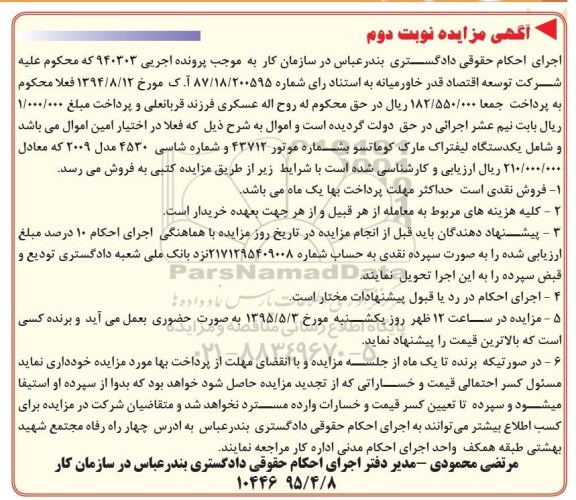 آگهی مزایده نوبت دوم
اجرای احکام حقوقی دادگستری بندرعباس در سازمان کار به موجب پرونده اجریی ۹۴۰۳۰۳ که محکوم علیه
شرکت توسعه اقتصاد قدر خاورمیانه به استناد رای شماره ۸۷/۱۸/۲۰۰۵۹۵ آ. ک مورخ ۱۳۹۴/۸/۱۲ فعلا محکوم
به پرداخت جمعا ۱۸۲/۵۵۰/۰۰۰ ریال در حق محکوم له روح اله عسکری فرزند قربانعلی و پرداخت مبلغ ۱/۰۰۰/۰۰۰
ریال بابت نیم عشر اجرائی در حق دولت گردیده است و اموال به شرح ذیل که فعلا در اختیار امین اموال می باشد
و شامل یکدستگاه لیفتراک مارک کوماتسو بشماره موتور ۴۳۷۱۲ و شماره شاسی ۴۵۳۰ مدل ۲۰۰۹ که معادل
۲۱۰/۰۰۰/۰۰۰ ریال ارزیابی و کارشناسی شده است با شرایط زیر از طریق مزایده کتبی به فروش می رسد.
۱- فروش نقدی است حداکثر مهلت پرداخت بها یک ماه می باشد.
۲ - کلیه هزینه های مربوط به معامله از هر قبیل و از هر جهت بعهده خریدار است.
۳ - پیشنهاد دهندگان باید قبل از انجام مزایده در تاریخ روز مزایده با هماهنگی اجرای احکام ۱۰ درصد مبلغ
ارزیابی شده را به صورت سپرده نقدی به حساب شماره ۲۱۷۱۲۹۵۴۰۹۰۰۸نزد بانک ملی شعبه دادگستری تودیع و
قبض سپرده را به این اجرا تحویل نمایند.
۴ - اجرای احکام در رد یا قبول پیشنهادات مختار است.
۵ - مزایده در ساعت ۱۲ ظهر روز یکشنبه مورخ ۱۳۹۵/۵/۳ به صورت حضوری بعمل می آید و برنده کسی
است که بالاترین قیمت را پیشنهاد نماید.
۶ - در صورتیکه برنده تا یک ماه از جلسه مزایده و با انقضای مهلت از پرداخت بها مورد مزایده خودداری نماید
مسئول کسر احتمالی قیمت و خساراتی که از تجدید مزایده حاصل شود خواهد بود که بدوا از سپرده او استیفا
میشود و سپرده تا تعیین کسر قیمت و خسارات وارده مسترد نخواهد شد و متقاضیان شرکت در مزایده برای
کسب اطلاع بیشتر می‌توانند به اجرای احکام حقوقی دادگستری بندرعباس به ادرس چهار راه رفاه مجتمع شهید
بهشتی طبقه همکف واحد اجرای احکام مدنی اداره کار مراجعه نمایند.
مرتضی محمودی -مدیر دفتر اجرای احکام حقوقی دادگستری بندرعباس در سازمان کار
۹۵/۴/۸ ۱۰۴۴۶
ParsNamadData
پایگاه اطلاع رسانی مناقصه و مزایده
۰۲۱-۸۸۳۴۹۶۷۰-۵